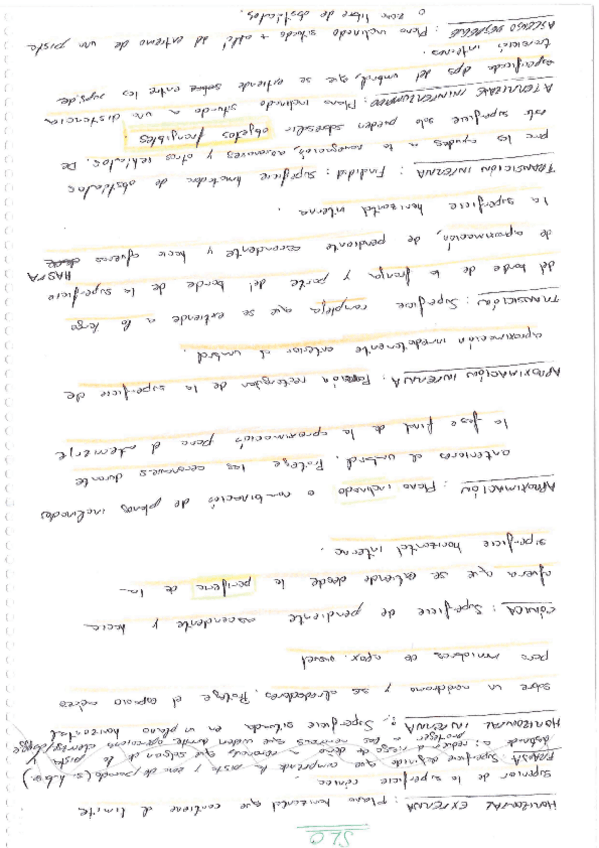 SLO
HORIZONTAL EXTERNA: plano horizontal que contiene el límite
superior de la superficie cónica.
FRANJA Superficie definida que comprende la pista y zona de parada (si hubo)
destinada a: reducir riesgo de daños a aeronaves que salgan de la pista y
proteger a las aeronaves que vuelen durante operación aterriz/despegue
HORIZONTAL INTERNA: Superficie situada en un plano horizontal
sobre un aeródromo y sus alrededores. Protege el espacio aéreo
para maniobras de apox. visual
CÓNICA: Superficie de pendiente ascendente y hacia
afuera que se extiende desde la periferia de la
superficie horizontal interna.
APROXIMACIÓN: Plano inclinado o combinación de planos inclinados
anteriores al umbral. Protege las aeronaves durante
la fase final de la aproximación para el aterrizaje
APROXIMACIÓN INTERNA: Porción rectangular de la superficie de
aproximación inmediatamente anterior al umbral.
TRANSICIÓN: Superficie compleja que se extiende a lo largo
del borde de la franja y parte del borde de la superficie
de aproximación, de pendiente ascendente y hacia afueras HASTA
la superficie horizontal interna.
TRANSICIÓN INTERNA: Finalidad: superficie limitadora de obstáculos
para las ayudas a la navegación, aeronaves y otros vehículos. De
esta superficie solo pueden sobresalir objetos frangibles.
ATERRIZAJE ININTERRUMPIDO: Plano inclinado situado a una distancia
especificada dps del umbral, que se extiende sobre entre las sups. de
transición internas.
ASCENSO DESPEGUE: Plano inclinado situado + allá del extremo de una pista
o zona libre de obstáculos.